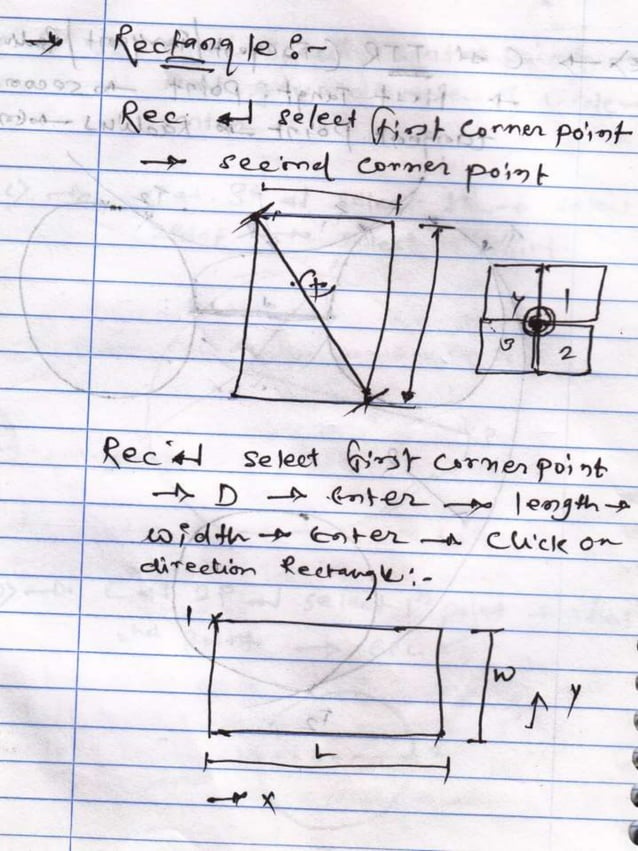 → Rectangle :-
Rec ↵ select first corner point
→ second corner point
4 1
3 2
Rec ↵ select first corner point
→ D → Enter → length →
width → Enter → Click on
direction Rectangle :-
1
W
Y
L
→ X